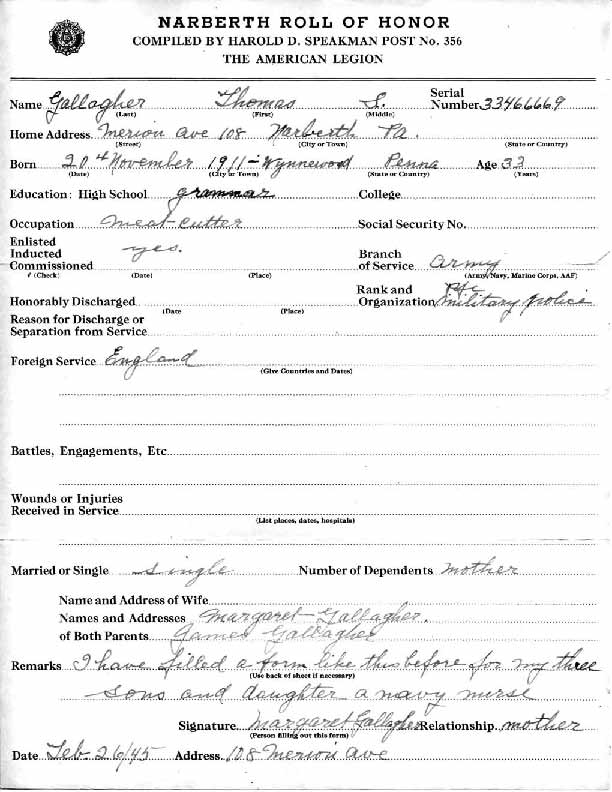 NARBERTH ROLL OF HONOR
COMPILED BY HAROLD D. SPEAKMAN POST No. 356
THE AMERICAN LEGION
Name Gallagher Thomas J. Serial Number 33466669
(Last) (First) (Middle)
Home Address Merion Ave 108 Narberth Pa.
(Street) (City or Town) (State or Country)
Born 20th November 1911 - Wynnewood Penna Age 33
(Date) (City or Town) (State or Country) (Years)
Education: High School grammar College
Occupation Meat-cutter Social Security No.
Enlisted
Inducted yes. Branch
Commissioned of Service Army
(Check) (Date) (Place) (Army, Navy, Marine Corps, AAF)
Rank and Pfc
Honorably Discharged Organization military police
(Date (Place)
Reason for Discharge or
Separation from Service
Foreign Service England
(Give Countries and Dates)
Battles, Engagements, Etc
Wounds or Injuries
Received in Service
(List places, dates, hospitals)
Married or Single single Number of Dependents mother
Name and Address of Wife
Names and Addresses Margaret Gallagher.
of Both Parents James Gallagher
Remarks I have filled a form like this before for my three
(Use back of sheet if necessary)
sons and daughter a navy nurse
Signature Margaret Gallagher Relationship mother
(Person filling out this form)
Date Feb-26/45 Address 108 Merion Ave